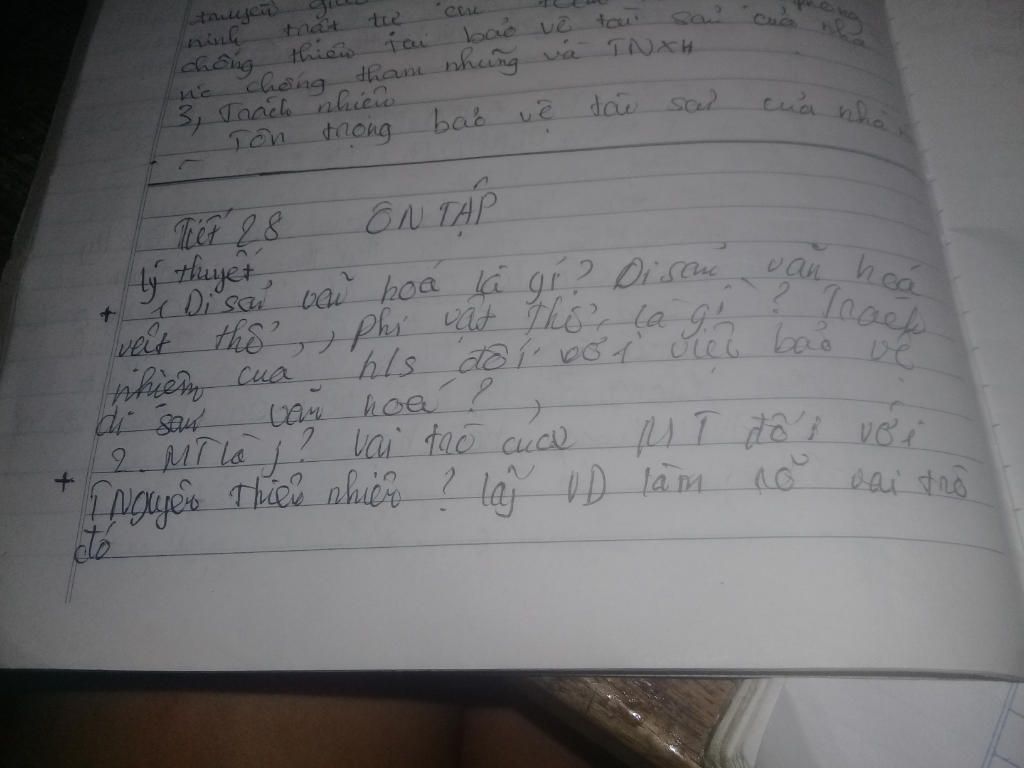 truyền
ninh trật tự
chống thiên tai bảo vệ tài sản của nhà
nc chống tham nhũng và TNXH
3, Trách nhiệm
- Tôn trọng bảo vệ tài sản của nhà n
Tiết 28 ÔN TẬP
Lý thuyết
+ 1 Di sản văn hoá là gí? Di sản văn hoá
vật thể, , phi vật thể, là gì? Trách
nhiệm của h/s đối với việc bảo vệ
di sản văn hoá? ,
2. MT là j? Vai trò của MT đối với
+ TNguyên thiên nhiên? lấy VD làm rõ vai trò
đó